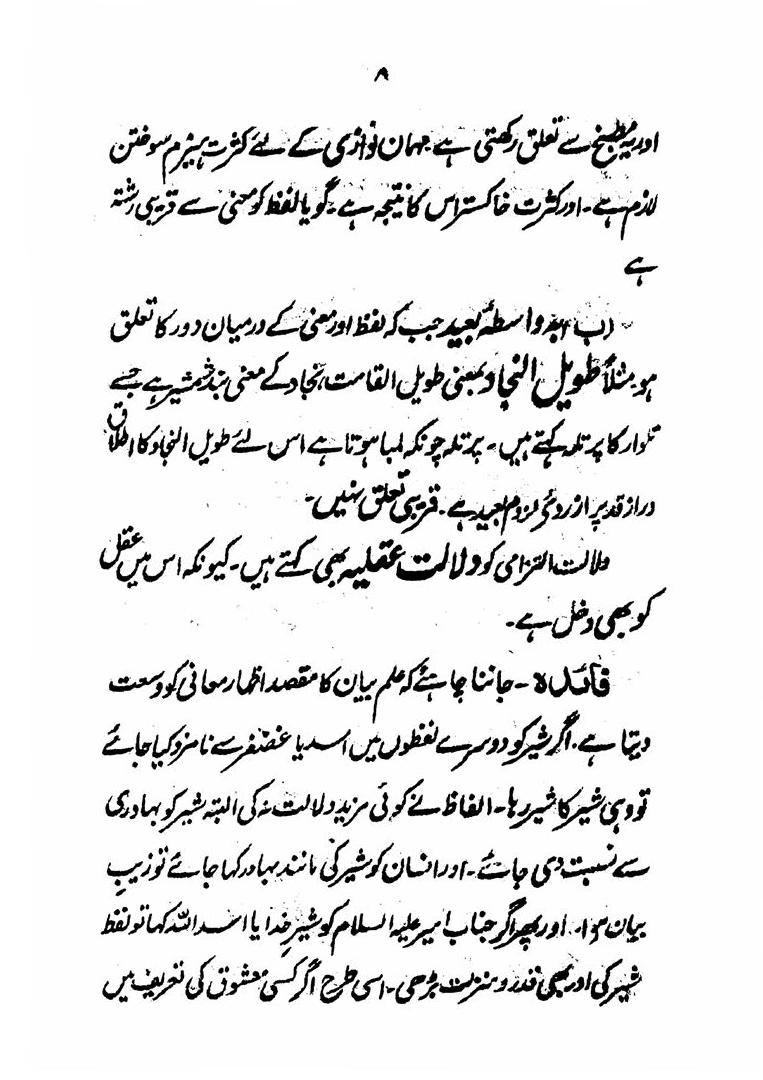 ۸
اور یہ مطبخ سے تعلق رکھتی ہے جہمان نوازی کے لئے کثرت ہیزم سوختن
لازم ہے۔ اور کثرت خاکستر اس کا نتیجہ ہے۔ گویا لفظ کو معنی سے قریبی رشتہ
ہے
(ب) بواسطۂ بعید جب کہ لفظ اور معنی کے درمیان دور کا تعلق
ہو مثلاً طویل النجاد بمعنی طویل القامت، نجاد کے معنی بند شمشیر ہے جسے
تلوار کا پرتلہ کہتے ہیں۔ پرتلہ چونکہ لمبا ہوتا ہے اس لئے طویل النجاد کا اطلاق
دراز قد پر از روئے لزوم بعید ہے۔ قریبی تعلق نہیں۔
دلالت التزامی کو دلالت عقلیہ بھی کہتے ہیں۔ کیونکہ اس میں عقل
کو بھی دخل ہے۔
فائدہ۔ جاننا چاہئے کہ علم بیان کا مقصد اظہار معانی کو وسعت
دیتا ہے۔ اگر شیر کو دوسرے لفظوں میں اسد یا غضنفر سے نامزد کیا جائے
تو وہی شیر کا شیر رہا۔ الفاظ نے کوئی مزید دلالت نہ کی البتہ شیر کو بہادری
سے نسبت دی جائے۔ اور انسان کو شیر کی مانند بہادر کہا جائے تو زیبِ
بیان ہوا۔ اور پھر اگر جناب امیر علیہ السلام کو شیرِ خدا یا اسد اللہ کہا تو لفظ
شیر کی اور بھی قدر و منزلت بڑھی۔ اسی طرح اگر کسی معشوق کی تعریف میں